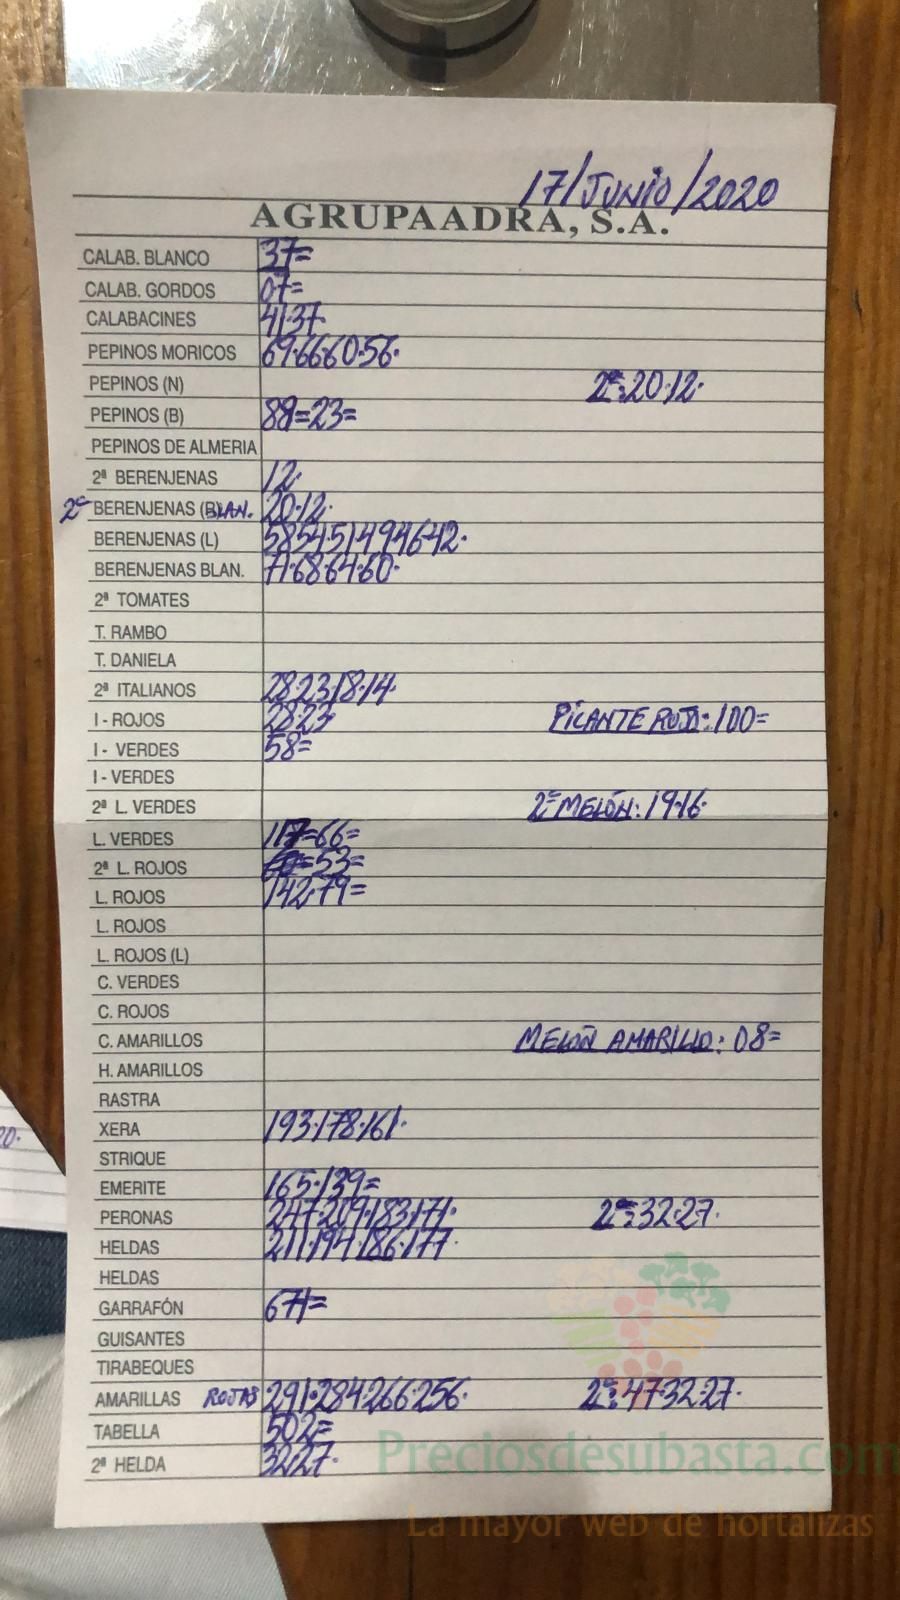 17/JUNIO/2020
AGRUPAADRA, S.A.
CALAB. BLANCO 37=
CALAB. GORDOS 07=
CALABACINES 41·37
PEPINOS MORICOS 69·66·60·56·
PEPINOS (N) 2ª:20·12·
PEPINOS (B) 88=23=
PEPINOS DE ALMERIA
2ª BERENJENAS 12·
2ª BERENJENAS (BLAN. 20·12·
BERENJENAS (L) 58·54·51·49·46·42·
BERENJENAS BLAN. 71·68·64·60·
2ª TOMATES
T. RAMBO
T. DANIELA
2ª ITALIANOS 28·23·18·14·
I - ROJOS 28·23 PICANTE ROJA: 100=
I - VERDES 58=
I - VERDES
2ª L. VERDES 2ª MELÓN: 19·16·
L. VERDES 117=66=
2ª L. ROJOS 60=53=
L. ROJOS 142·79=
L. ROJOS
L. ROJOS (L)
C. VERDES
C. ROJOS
C. AMARILLOS MELÓN AMARILLO: 08=
H. AMARILLOS
RASTRA
XERA 193·178·161·
STRIQUE
EMERITE 165·139=
PERONAS 247·209·183·171· 2ª:32·27·
HELDAS 211·194·186·177·
HELDAS
GARRAFÓN 671=
GUISANTES
TIRABEQUES
AMARILLAS ROJAS 291·284·266·256· 2ª:47·32·27·
TABELLA 502=
2ª HELDA 32·27·
20·
Preciosdesubasta.com
La mayor web de hortalizas